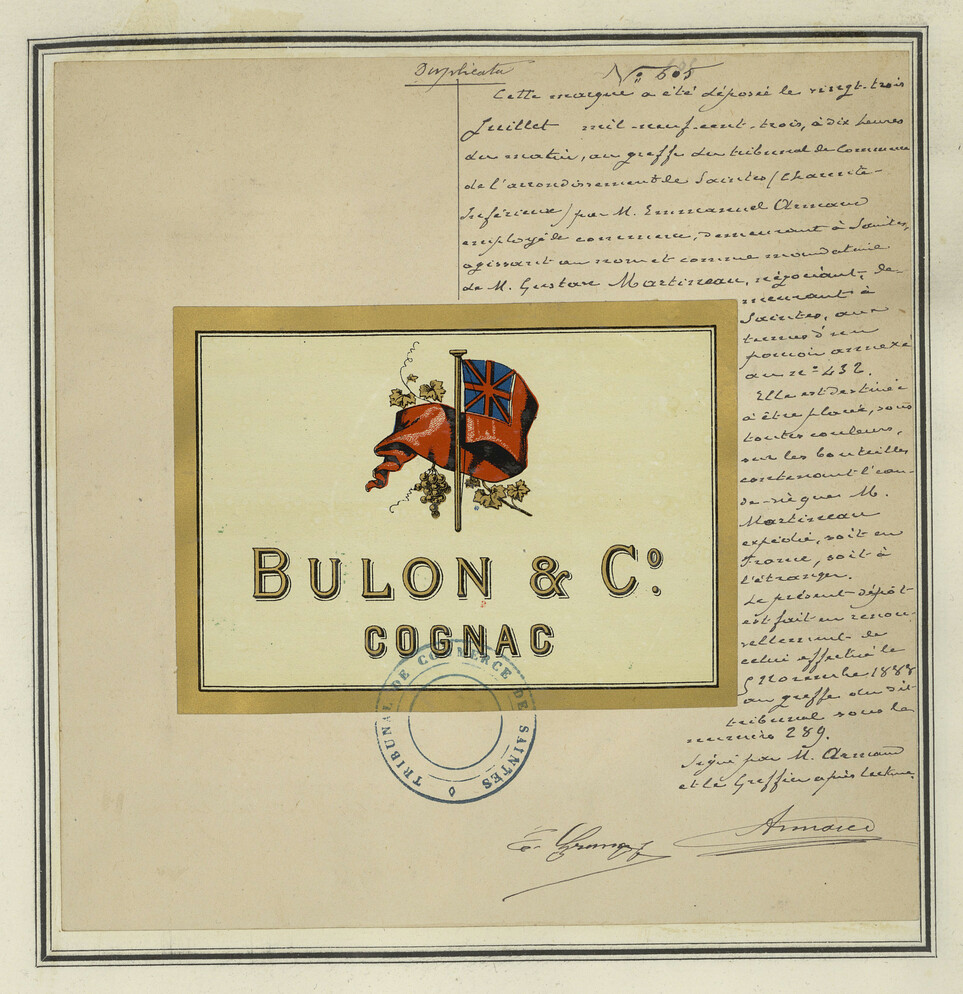 Duplicata
N° 605
Cette marque a été déposée le vingt-trois
Juillet mil-neuf-cent-trois, à dix heures
du matin, au greffe du tribunal de Commerce
de l'arrondissement de Saintes (Charente-
Inférieure) par M. Emmanuel Armand
employé de commerce, demeurant à Saintes,
agissant au nom et comme mandataire
de M. Gustave Martineau, négociant, de-
meurant à
Saintes, aux
termes d'un
pouvoir annexé
au n° 432.
Elle est destinée
à être placée, sous
toutes couleurs,
sur les bouteilles
contenant l'eau-
de-vie que M.
Martineau
expédie, soit en
France, soit à
l'étranger.
Le présent dépôt
est fait en renou-
vellement de
celui effectué le
5 Novembre 1888
au greffe du dit
tribunal sous le
numéro 289.
Signé par M. Armand
et le Greffier après lecture.
Armand
BULON & Cº
COGNAC
TRIBUNAL DE COMMERCE DE SAINTES